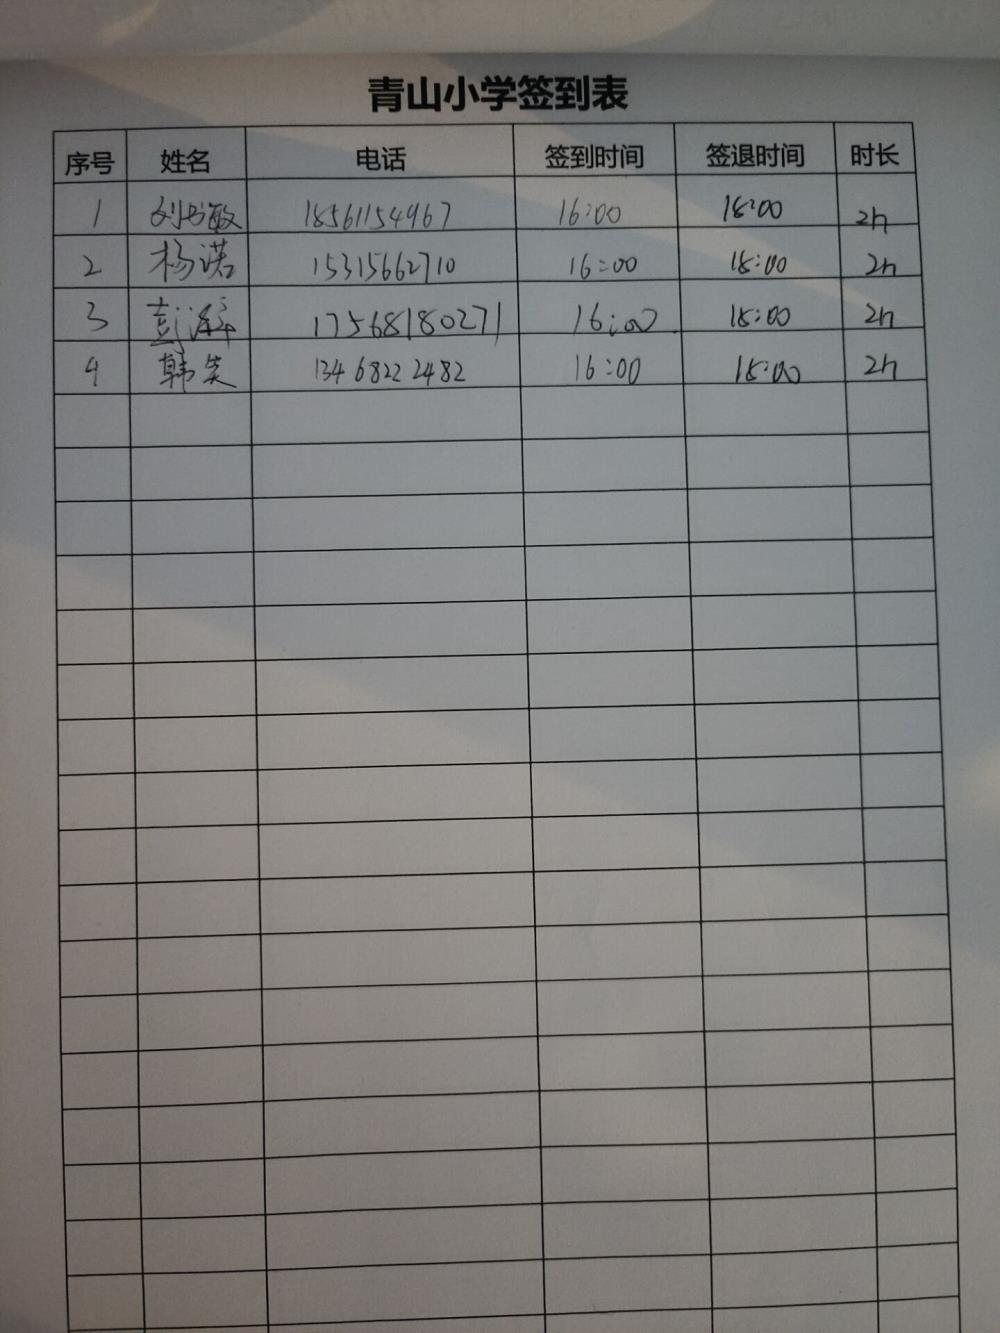 青山小学签到表
序号 姓名 电话 签到时间 签退时间 时长
1 刘书敏 18561154967 16:00 18:00 2h
2 杨诺 15315662710 16:00 18:00 2h
3 彭 17568180271 16:00 18:00 2h
4 韩笑 13468222482 16:00 18:00 2h